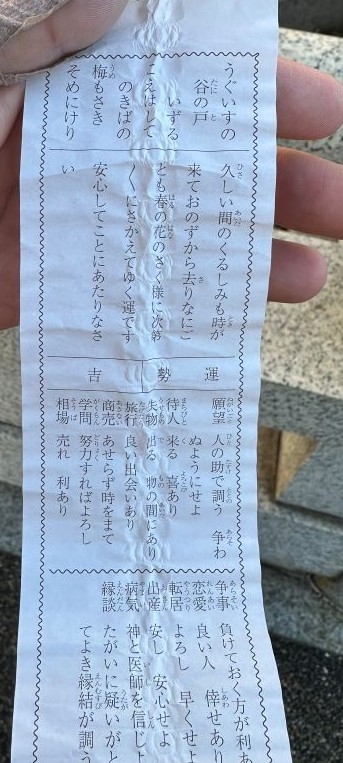 うぐいすの
谷の戸
いずる
こえはして
のきばの
梅もさき
そめにけり
久しい間のくるしみも時が
来ておのずから去りなにご
とも春の花のさく様に次第
〳〵にさかえてゆく運です
安心してことにあたりなさ
い
運勢 吉
願望 人の助で調う 争わ
ぬようにせよ
待人 来る 喜あり
失物 出る 物の間にあり
旅行 良い出会いあり
商売 あせらず時をまて
学問 努力すればよろし
相場 売れ 利あり
争事 負けておく方が利あ
恋愛 良い人 倖せあり
転居 よろし 早くせよ
出産 安し 安心せよ
病気 神と医師を信じよ
縁談 たがいに疑いがと
てよき縁結が調う